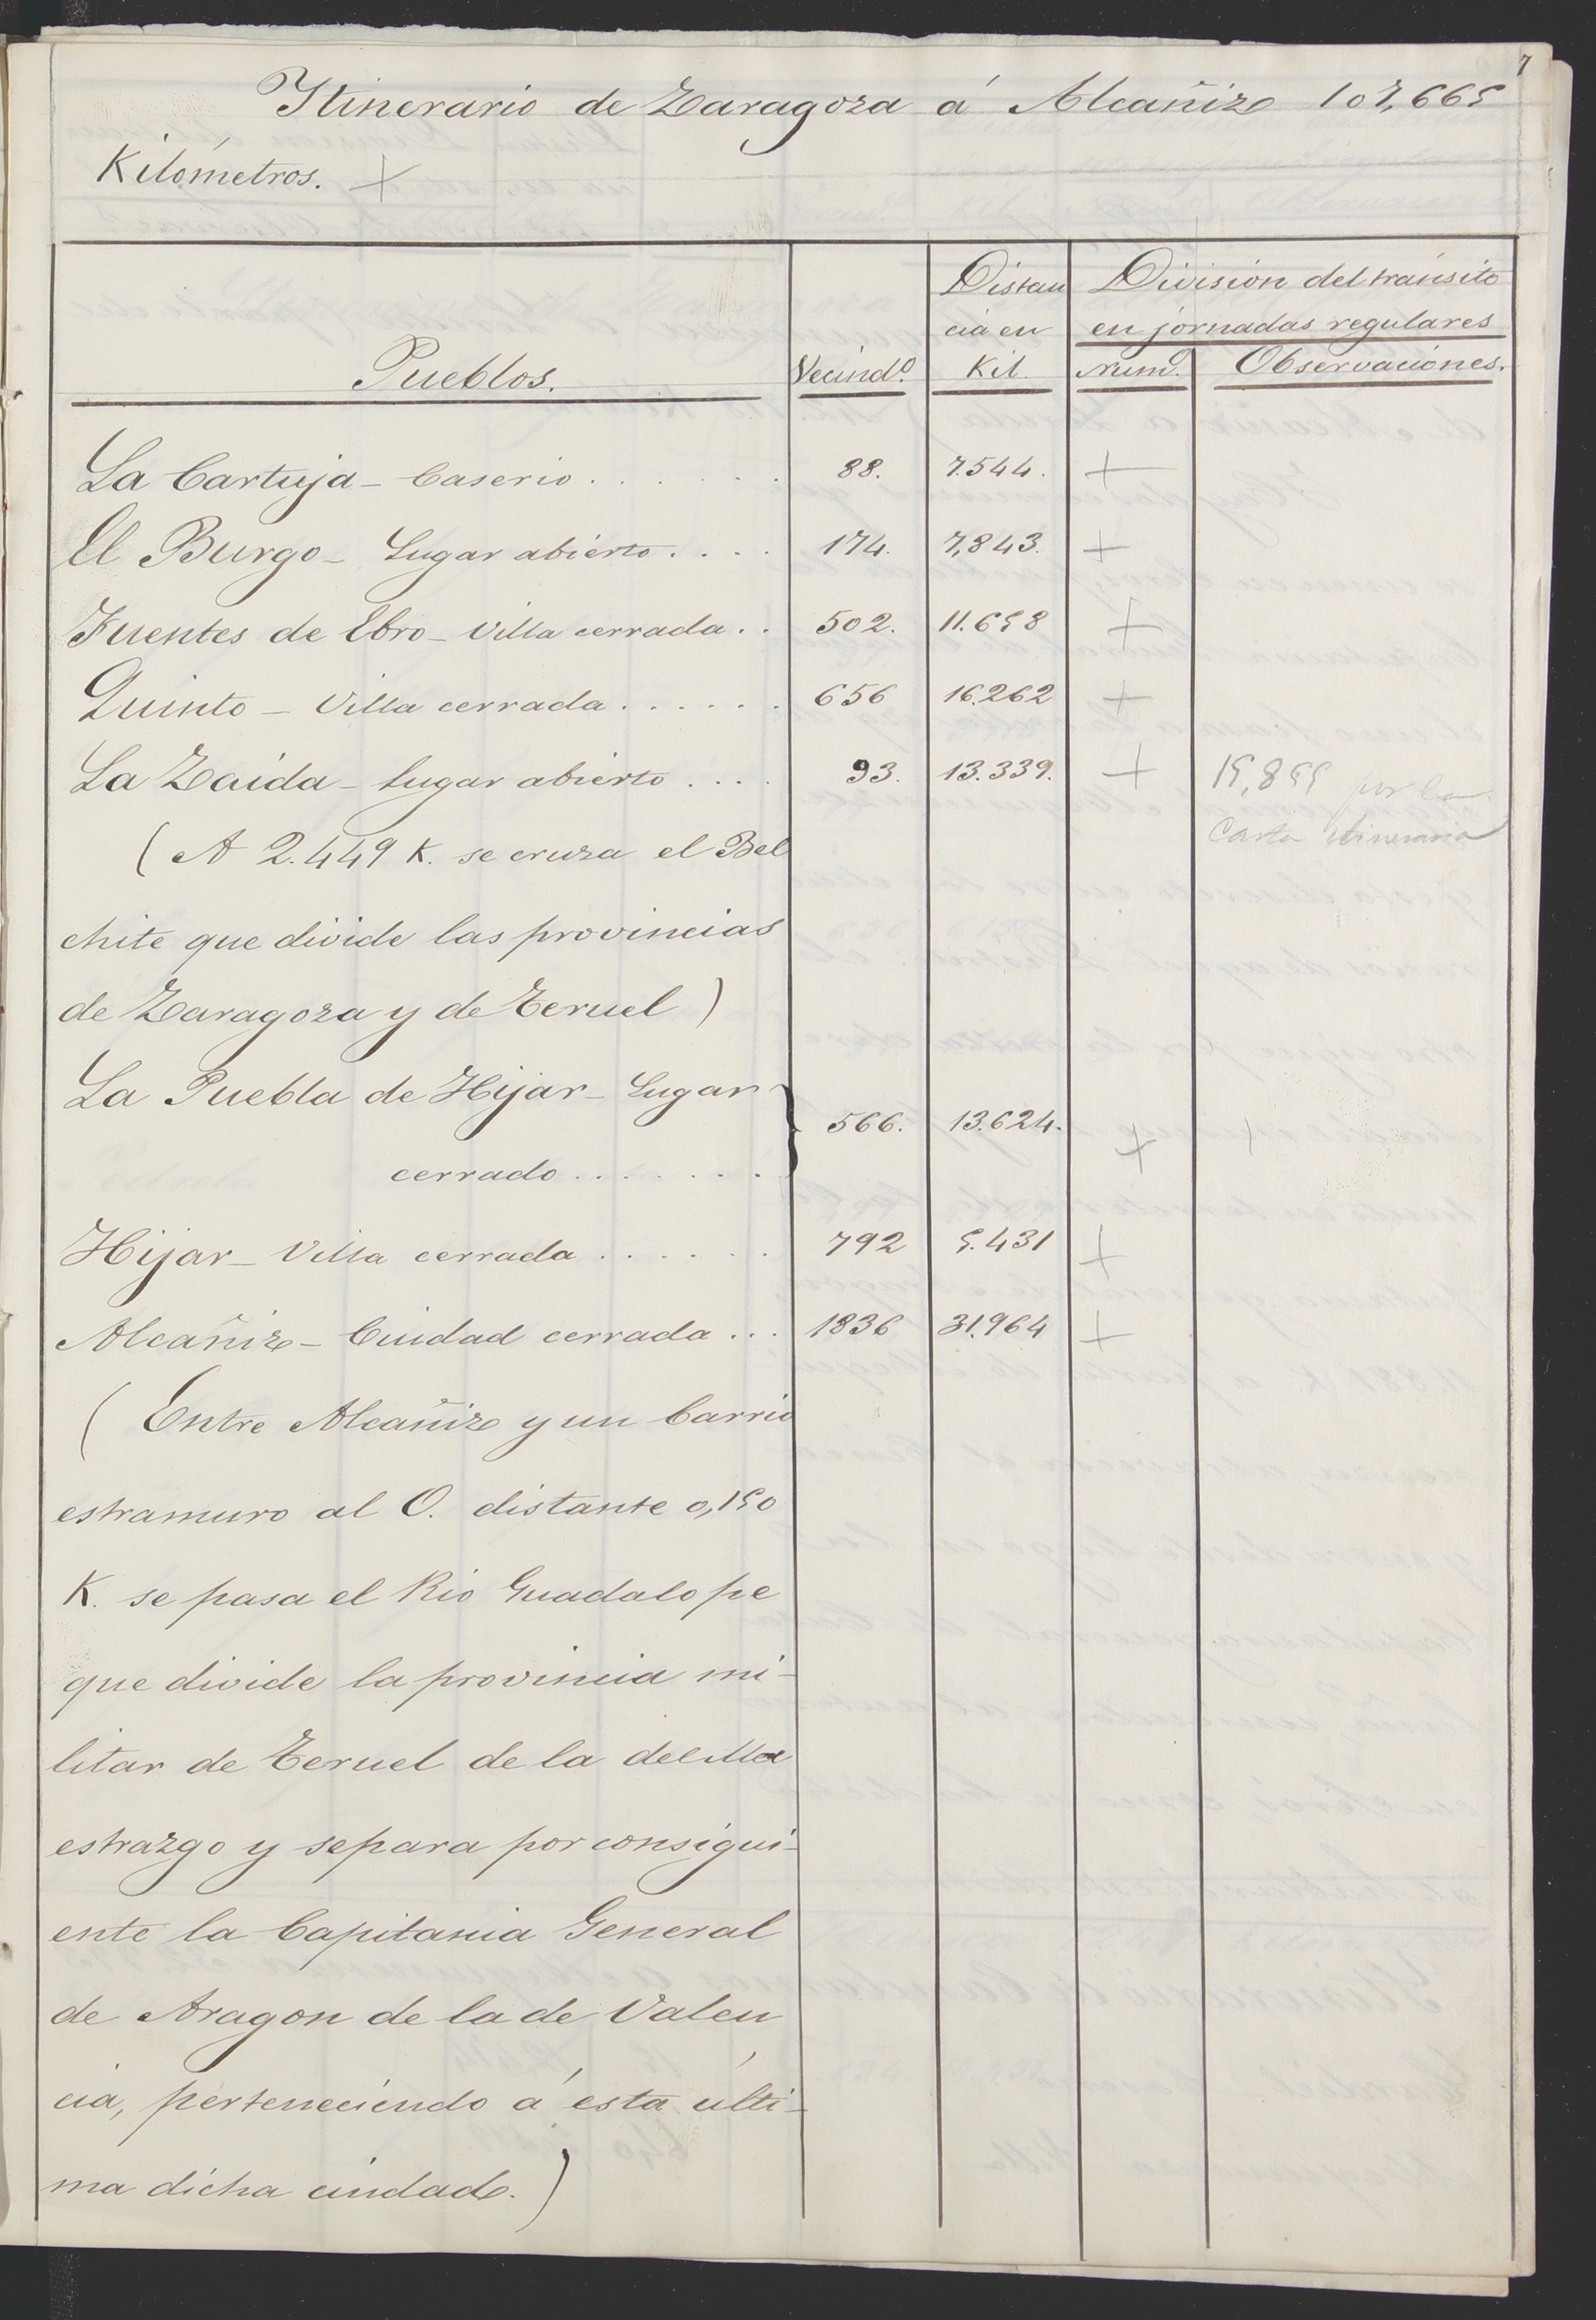 7
Ytinerario de Zaragoza á Alcañiz 107,665
Kilómetros. +
Pueblos.
Vecindº.
Distan
cia en
Kil.
División del tránsito
en jornadas regulares
Numº.
Observaciones.
La Cartuja - Caserio . . . . . . 88. 7.544. +
El Burgo - Lugar abierto . . . . 174. 7,843. +
Fuentes de Ebro - Villa cerrada . . 502. 11.658 +
Quinto - Villa cerrada . . . . . . 656 16.262 +
La Zaida - Lugar abierto . . . . 93. 13.339. + 15,855 por la
Carta itineraria
( A 2.449 K. se cruza el Bel
chite que divide las provincias
de Zaragoza y de Teruel )
La Puebla de Hijar - Lugar
cerrado . . . . . . . 566. 13.624. +
Hijar - Villa cerrada . . . . . . 792 5.431 +
Alcañiz - Ciudad cerrada . . . 1836 31.964 +
( Entre Alcañiz y un barrio
estramuro al O. distante 0,150
K. se pasa el Rio Guadalope
que divide la provincia mi-
litar de Teruel de la del Ma
estrazgo y separa por consigui-
ente la Capitania General
de Aragon de la de Valen
cia, perteneciendo á esta últi-
ma dicha ciudad. )